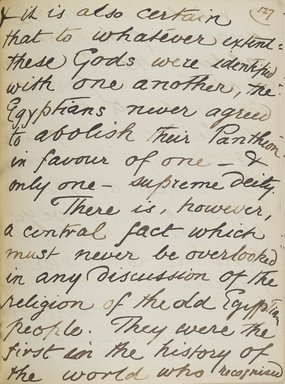 127
& it is also certain
that to whatever extent
these Gods were identified
with one another, the
Egyptians never agreed
to abolish their Pantheon
in favour of one - &
only one - supreme deity.
There is, however,
a central fact which
must never be overlooked
in any Discussion of the
religion of the old Egyptian
people. They were the
first in the history of
the world who recognised